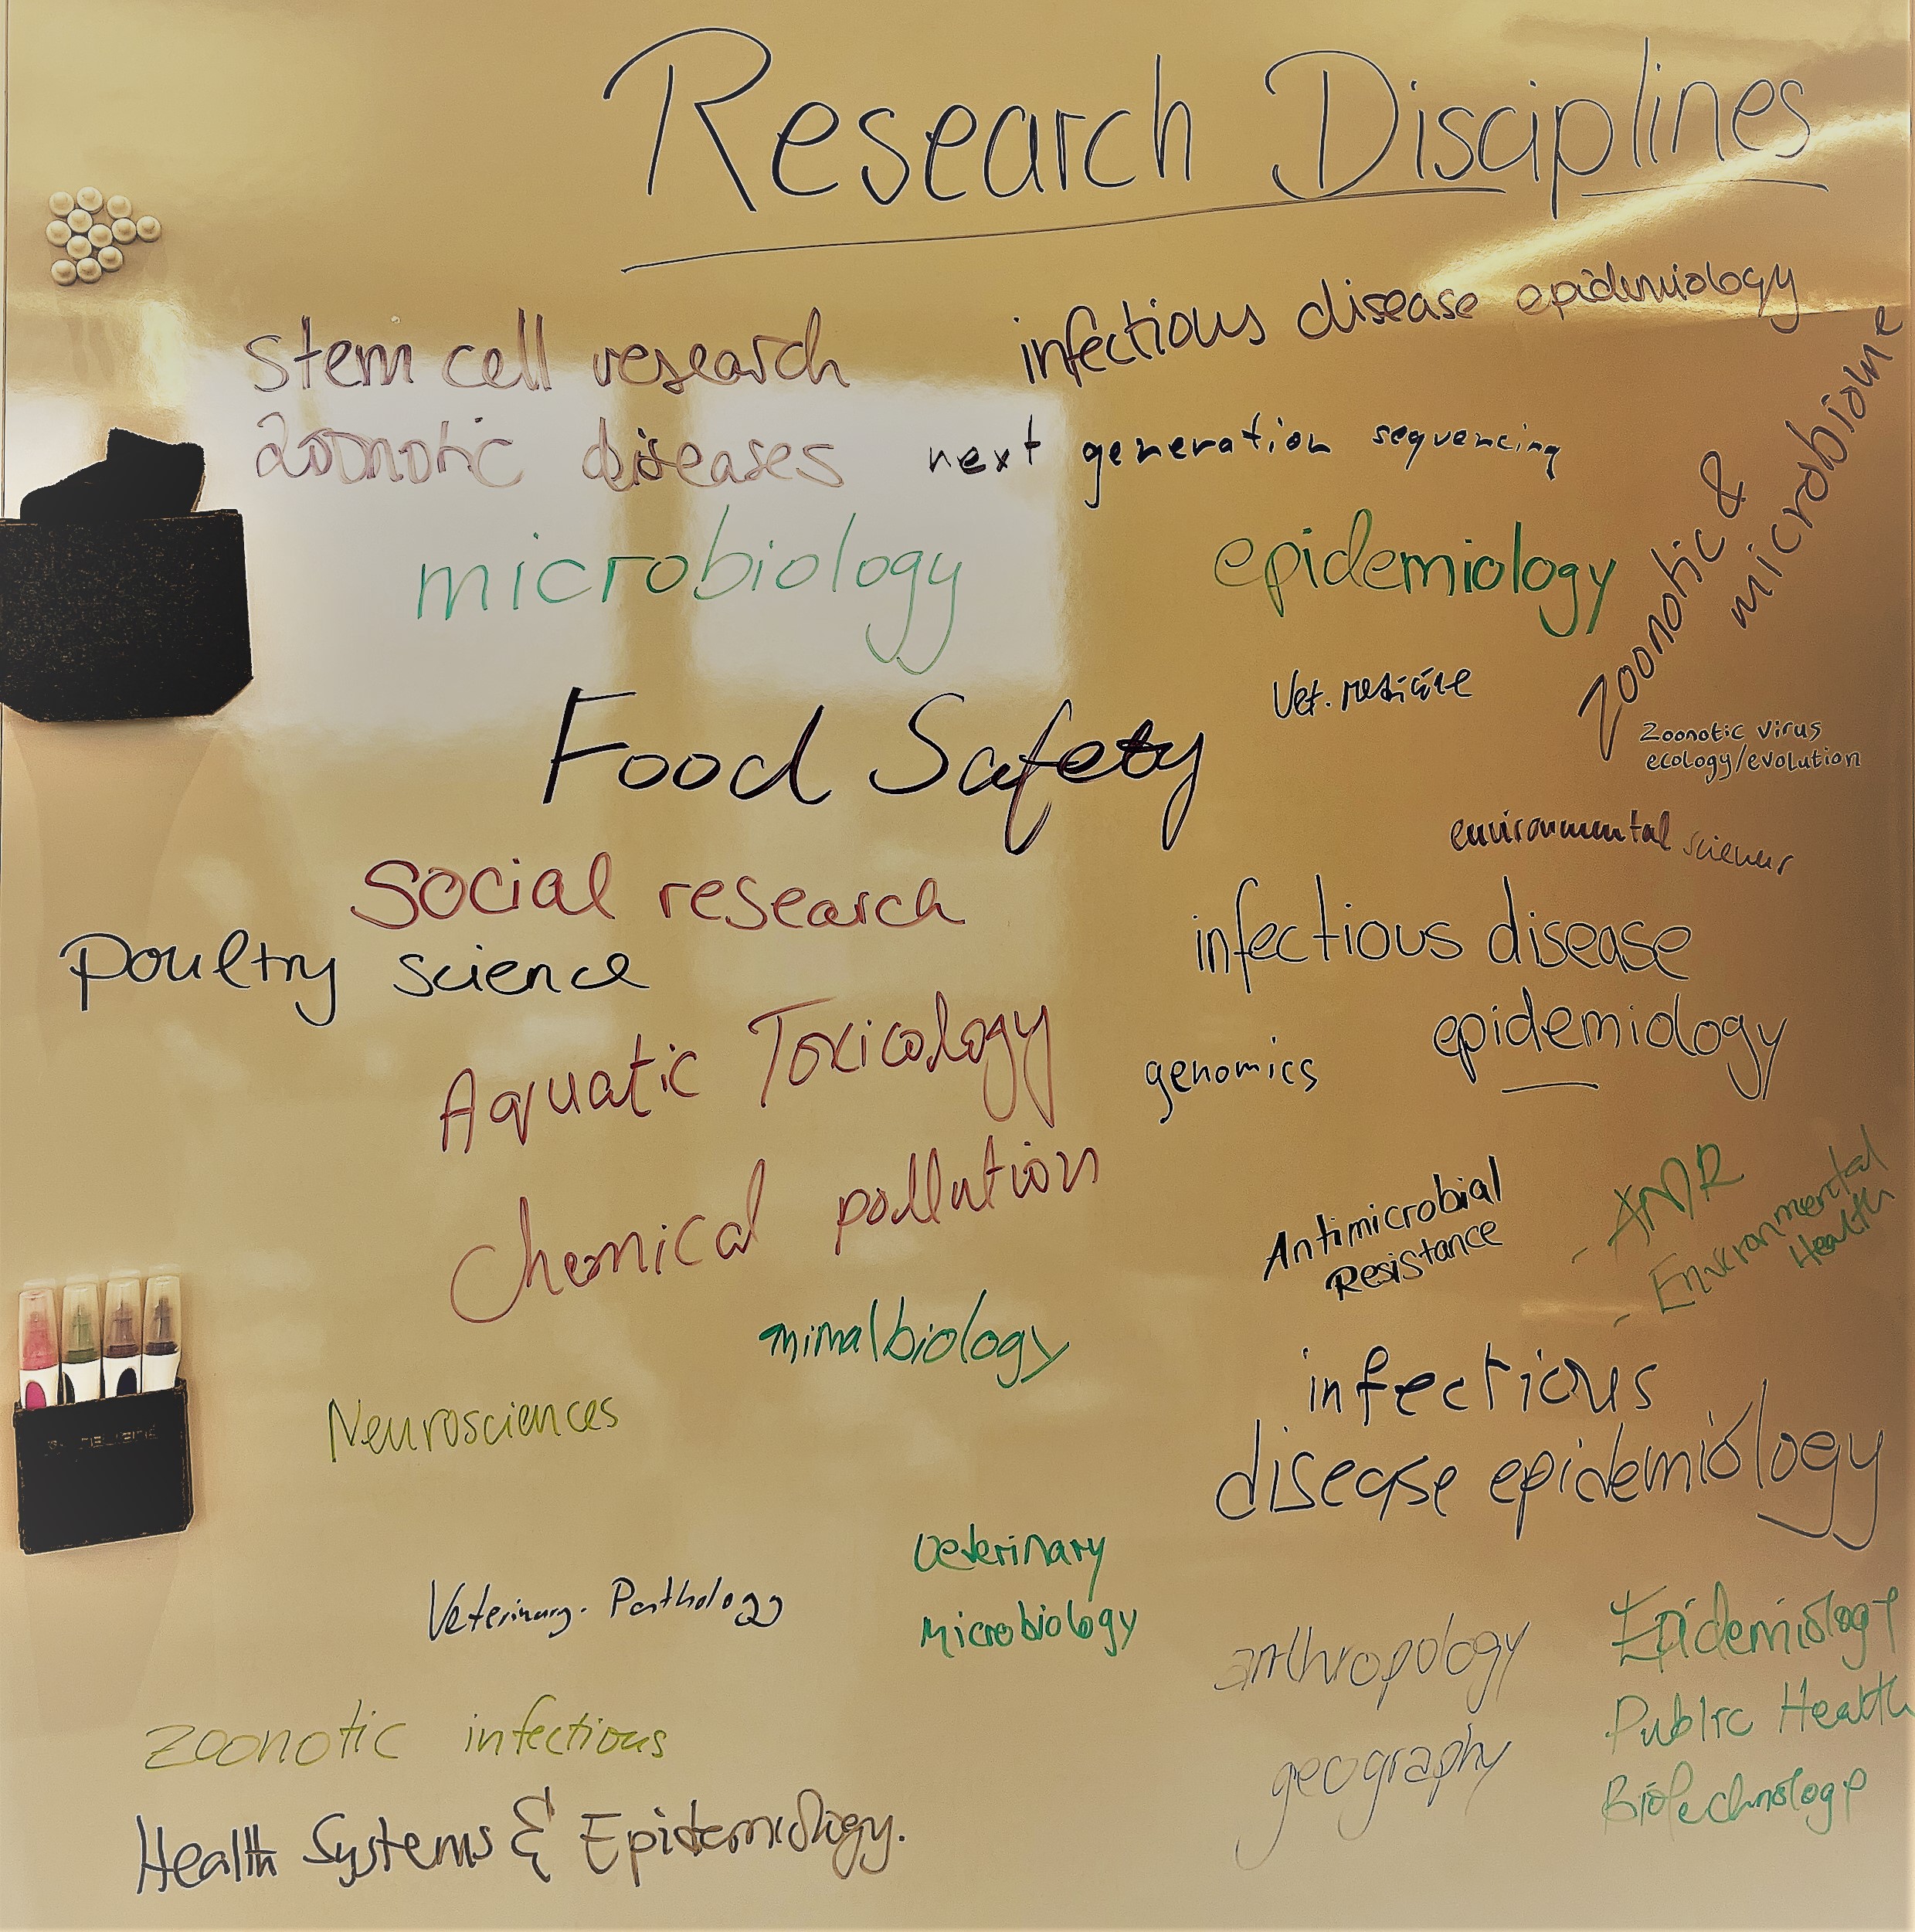 Research Disciplines
stem cell research
infectious disease epidemiology
zoonotic diseases
next generation sequencing
zoonotic &
microbiome
microbiology
epidemiology
Vet. medicine
Food Safety
Zoonotic virus
ecology/evolution
environmental sciences
social research
infectious disease
epidemiology
poultry science
Aquatic Toxicology
genomics
Chemical pollution
Antimicrobial
Resistance
- AMR
- Environmental
Health
animalbiology
infectious
disease epidemiology
Neurosciences
Veterinary
Microbiology
Veterinary. Pathology
anthropology
geography
Epidemiology
Public Health
Biotechnology
zoonotic infectious
Health Systems & Epidemiology.